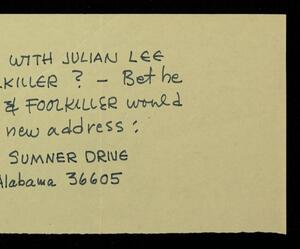 WITH JULIAN LEE
KILLER ? – Bet he
& FOOLKILLER would
new address :
SUMNER DRIVE
Alabama 36605